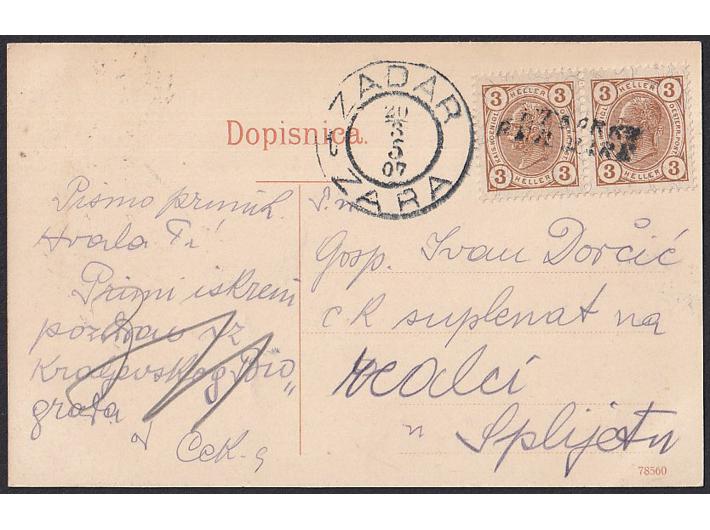 Dopisnica.
ZADAR
20
3
07
ZARA
3 HELLER 3
3 HELLER 3
3 HELLER 3
3 HELLER 3
Pismo primih.
Hvala Ti
Primi iskreni
pozdrav iz
Kraljevskog Bio
grada
Gosp. Ivan Dorčić
c k suplenat na
realci
u Splijetu
78560